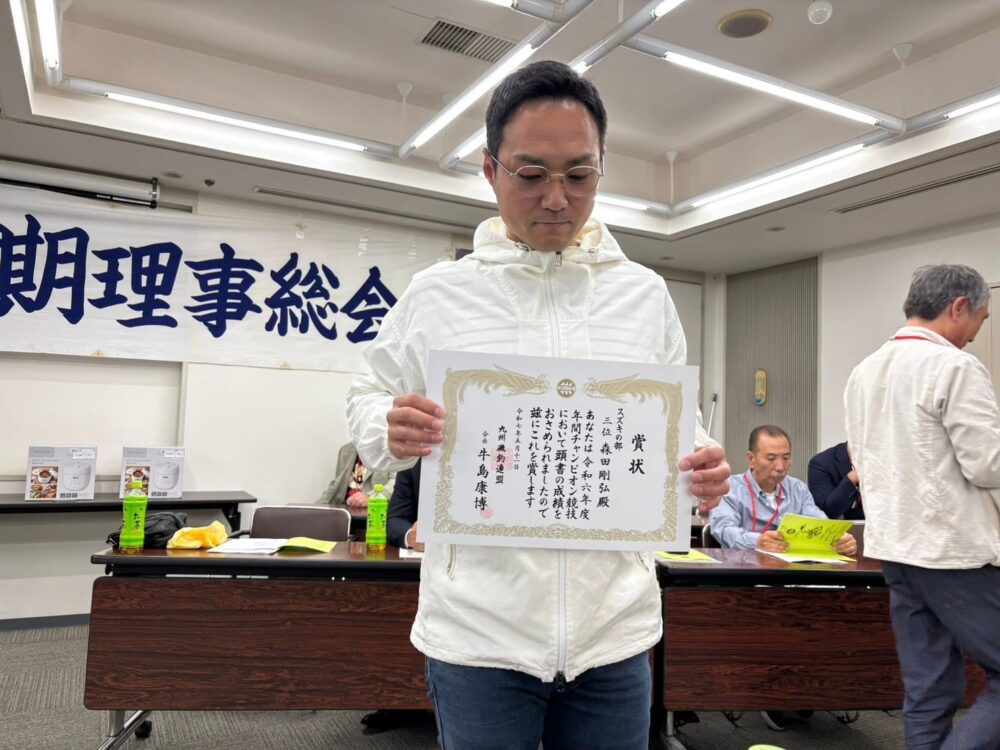 期理事総会
賞状
スズキの部
三位 森田剛弘殿
あなたは令和六年度
年間チャンピオン競技
において頭書の成績を
おさめられましたので
玆にこれを賞します
令和七年五月十一日
九州磯釣連盟
会長 牛島康博